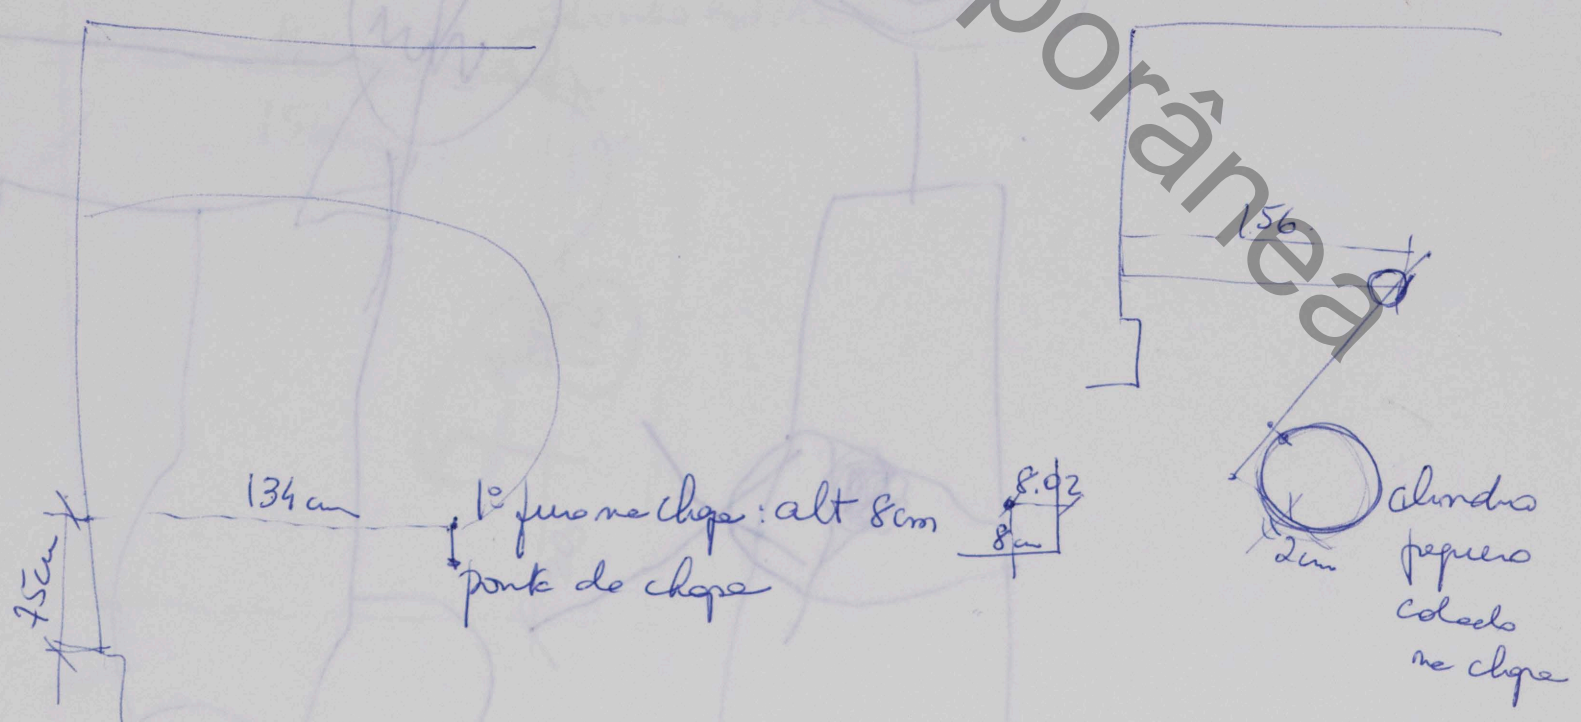 porânea
1.56
134 cm
1º furo na chapa: alt 8cm
ponta da chapa
75cm
8.02
8cm
2cm
cilindro
pequeno
colado
na chapa